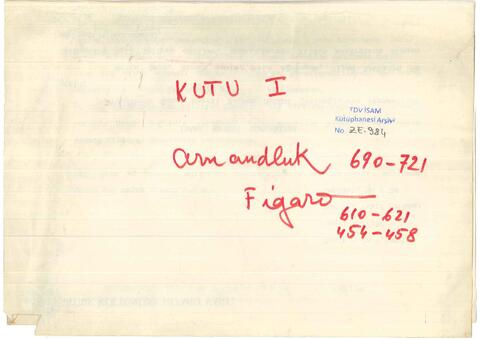 KUTU I
TDV İSAM
Kütüphanesi Arşivi
No. ZE-984
Arnavudluk 690-721
Figaro
610-621
454-458